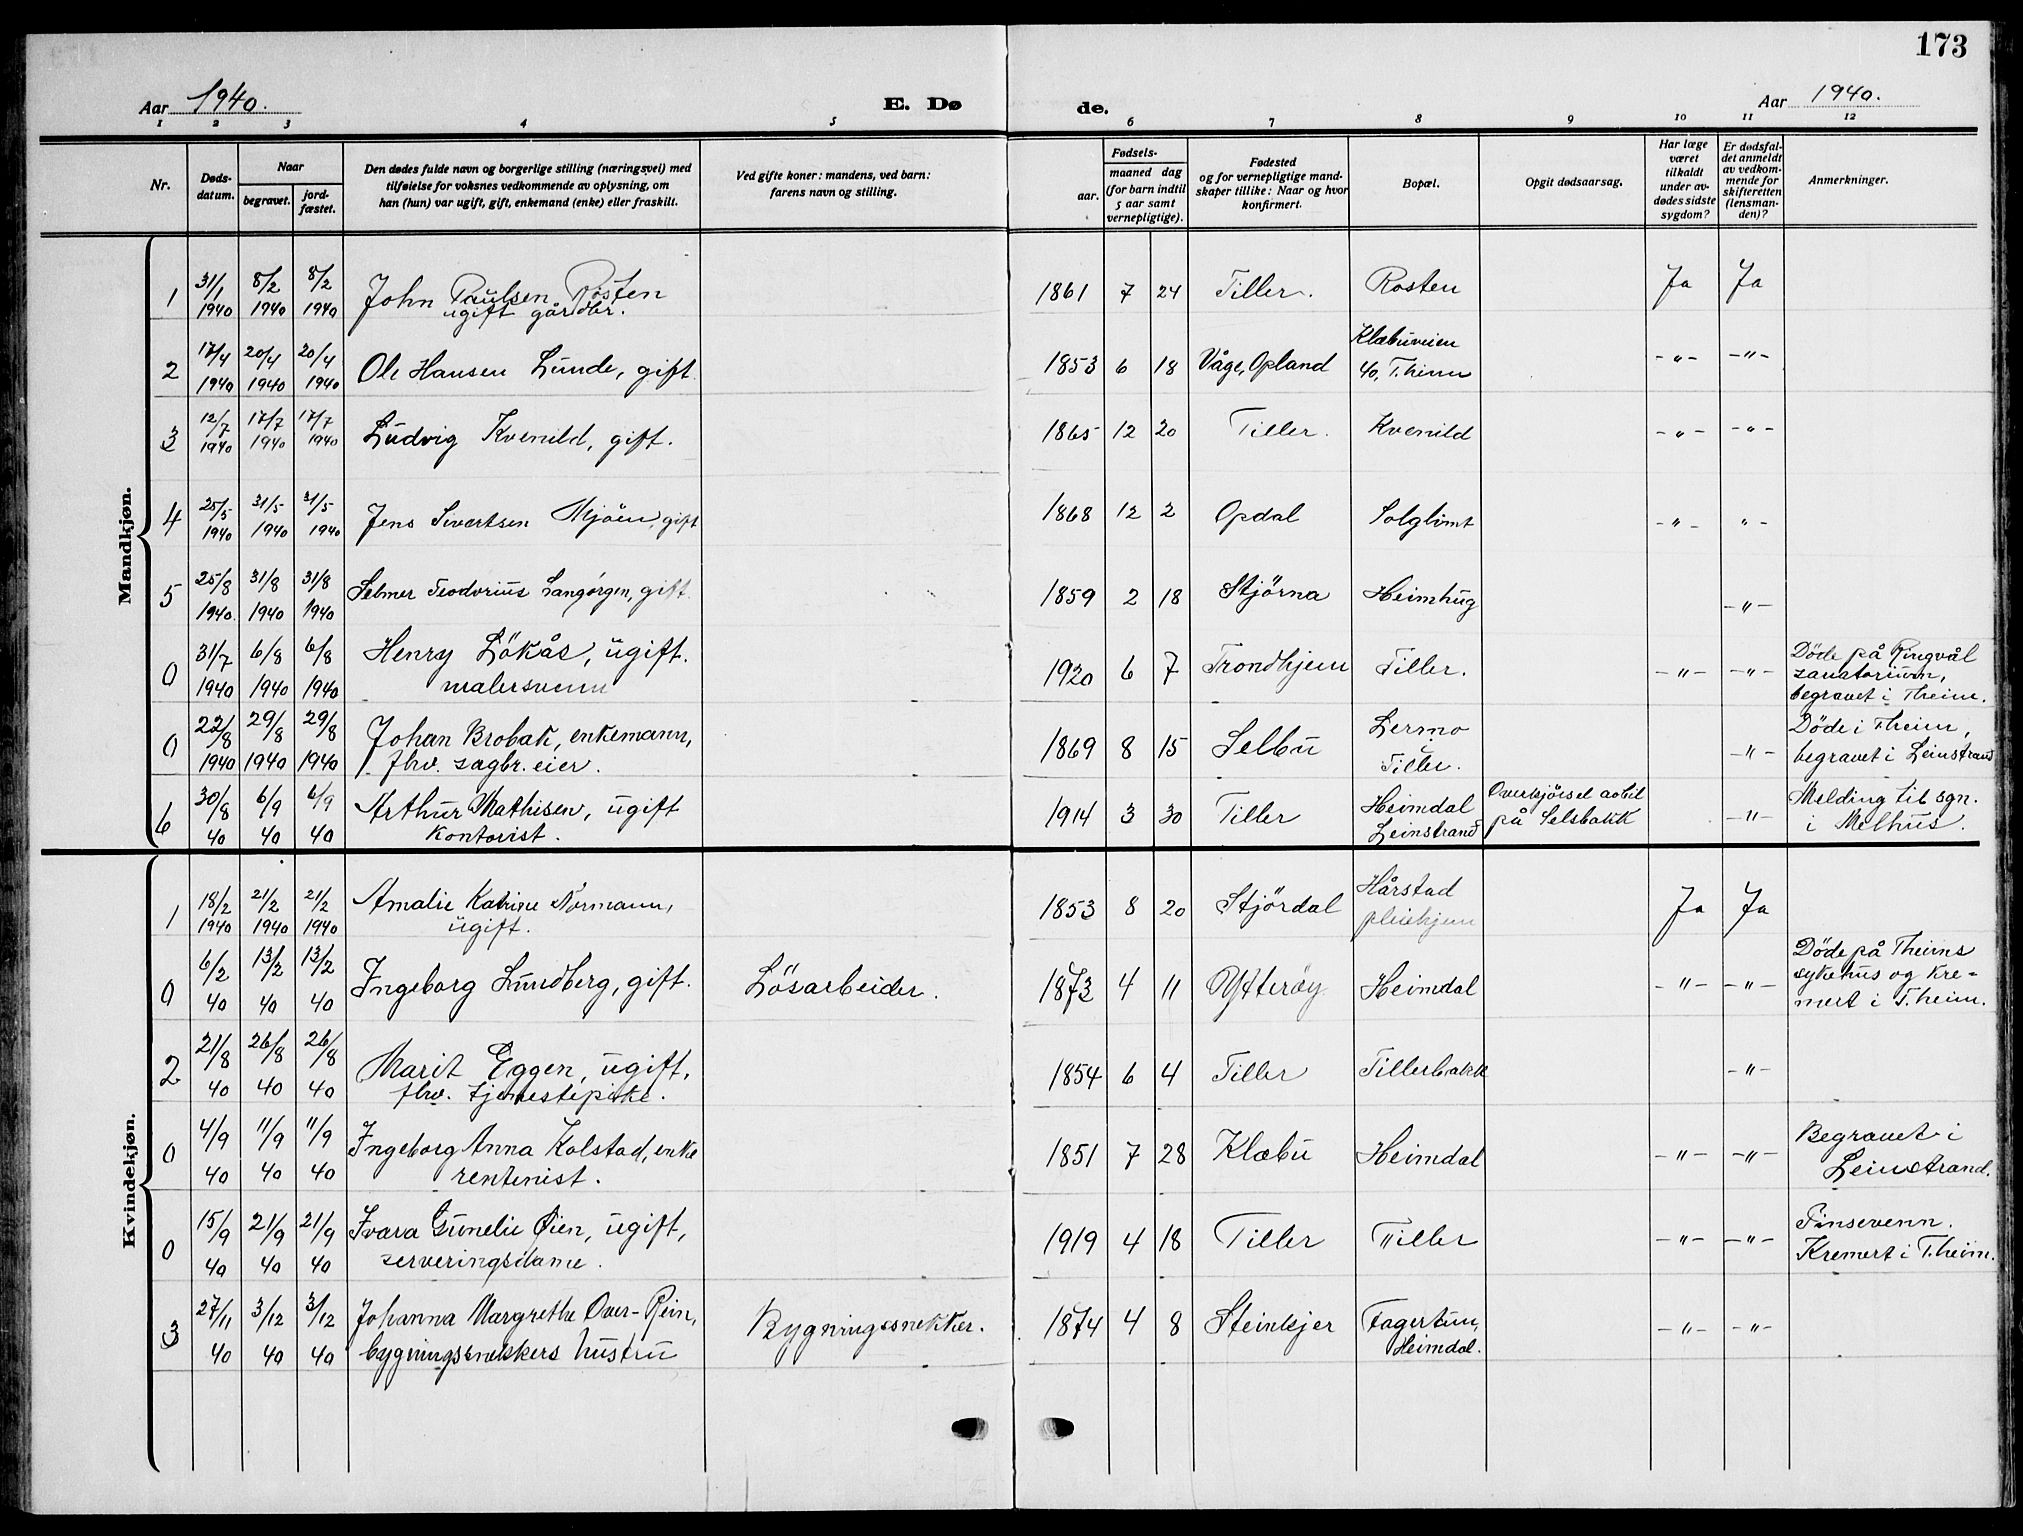 173
Aar 1940. E. Dø de. Aar 1940.
1 2 3 4 5 6 7 8 9 10 11 12
Nr. Døds-datum. Naar begravet. jord-fæstet. Den dødes fulde navn og borgerlige stilling (næringsvei) med tilføielse for voksnes vedkommende av oplysning, om han (hun) var ugift, gift, enkemand (enke) eller fraskilt. Ved gifte koner: mandens, ved barn: farens navn og stilling. Fødsels- aar. maaned dag (for barn indtil 5 aar samt vernepligtige). Fødested og for vernepligtige mand-skaper tillike: Naar og hvor konfirmert. Bopæl. Opgit dødsaarsag. Har læge været tilkaldt under av-dødes sidste sygdom? Er dødsfal-det anmeldt av vedkom-mende for skifteretten (lensman-den)? Anmerkninger.
Mandkjøn.
1 31/1 1940 8/2 1940 8/2 1940 John Paulsen Røsten ugift gårdbr. 1861 7 24 Tiller. Rosten Ja Ja
2 17/4 1940 20/4 1940 20/4 1940 Ole Hansen Lunde, gift 1853 6 18 Våge, Opland Klæbuveien 40, T.heim -"- -"-
3 12/7 1940 17/7 1940 17/7 1940 Ludvig Kvenild, gift. 1865 12 20 Tiller. Kvenild -"- -"-
4 25/5 1940 31/5 1940 31/5 1940 Jens Sivertsen Mjöen, gift 1868 12 2 Opdal Solglimt -"- "-
5 25/8 1940. 31/8 1940 31/8 1940 Selmer Teodorius Langörgen, gift. 1859 2 18 Stjörna Heimhug -"-
0 31/7 1940 6/8 1940 6/8 1940 Henry Lökås, ugift. malersvenn 1920 6 7 Trondhjem Tiller. -"- -"- Döde på Ringvål sanatorium, begravet i Theim.
0 22/8 1940 29/8 1940 29/8 1940 Johan Brobak, enkemann, fhv. sagbr. eier. 1869 8 15 Selbu Lermo Tiller. -"- Döde i Theim, begravet i Leinstrand
6 30/8 40 6/9 40 6/9 40 Arthur Mathisen, ugift kontorist. 1914 3 30 Tiller Heimdal Leinstrand Overkjörsel av bil på Selsbakk -"- Melding til sgn. i Melhus.
Kvindekjøn.
1 18/2 1940 21/2 1940 21/2 1940 Amalie Katrine Normann, ugift. 1853 8 20 Stjördal Hårstad pleiehjem Ja Ja
0 6/2 40 13/2 40 13/2 40 Ingeborg Lundberg, gift. Lösarbeider. 1873 4 11 Ytteröy Heimdal -"- -"- Döde på Theims sykehus og kre-mert i T.heim.
2 21/8 40 26/8 40 26/8 40 Marit Eggen, ugift, fhv. tjenestepike. 1854 6 4 Tiller Tillerbakk -"-
0 4/9 40 11/9 40 11/9 40 Ingeborg Anna Kolstad, enke rentenist. 1851 7 28 Klæbu Heimdal -"- -"- Begravet i Leinstrand.
0 15/9 40 21/9 40 21/9 40 Ivara Gunelie Øien, ugift, serveringsdame. 1919 4 18 Tiller Tiller -"- -"- Pinsevenn. Kremert i T.heim.
3 27/11 40 3/12 40 3/12 40 Johanna Margrethe Over-Rein, bygningssnekkers hustru Bygningssnekker. 1874 4 8 Steinkjer Fagertun, Heimdal. -"- -"-